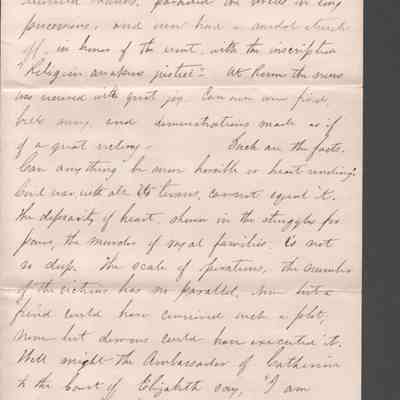 paraded the streets in long
processions, and even had a medal struck
off, in honor of the event, with the inscription
"Religion awakens justice". At Rome the news
was received with great joy. Cannon were fired,
bells rung, and demonstrations made as if
of a great victory. Such are the facts.
Can anything be more horrible or heart rending?
Civil war with all its terrors, cannot equal it.
The depravity of heart, shown in the struggles for
power, the murder of royal families, is not
so deep. The scale of the number
of the victims has no parallel, None but a
fiend could have conceived such a plot,
none but demons could have executed it.
Well might the Ambassador of Catherine
to the Court of Elizabeth say, "I am